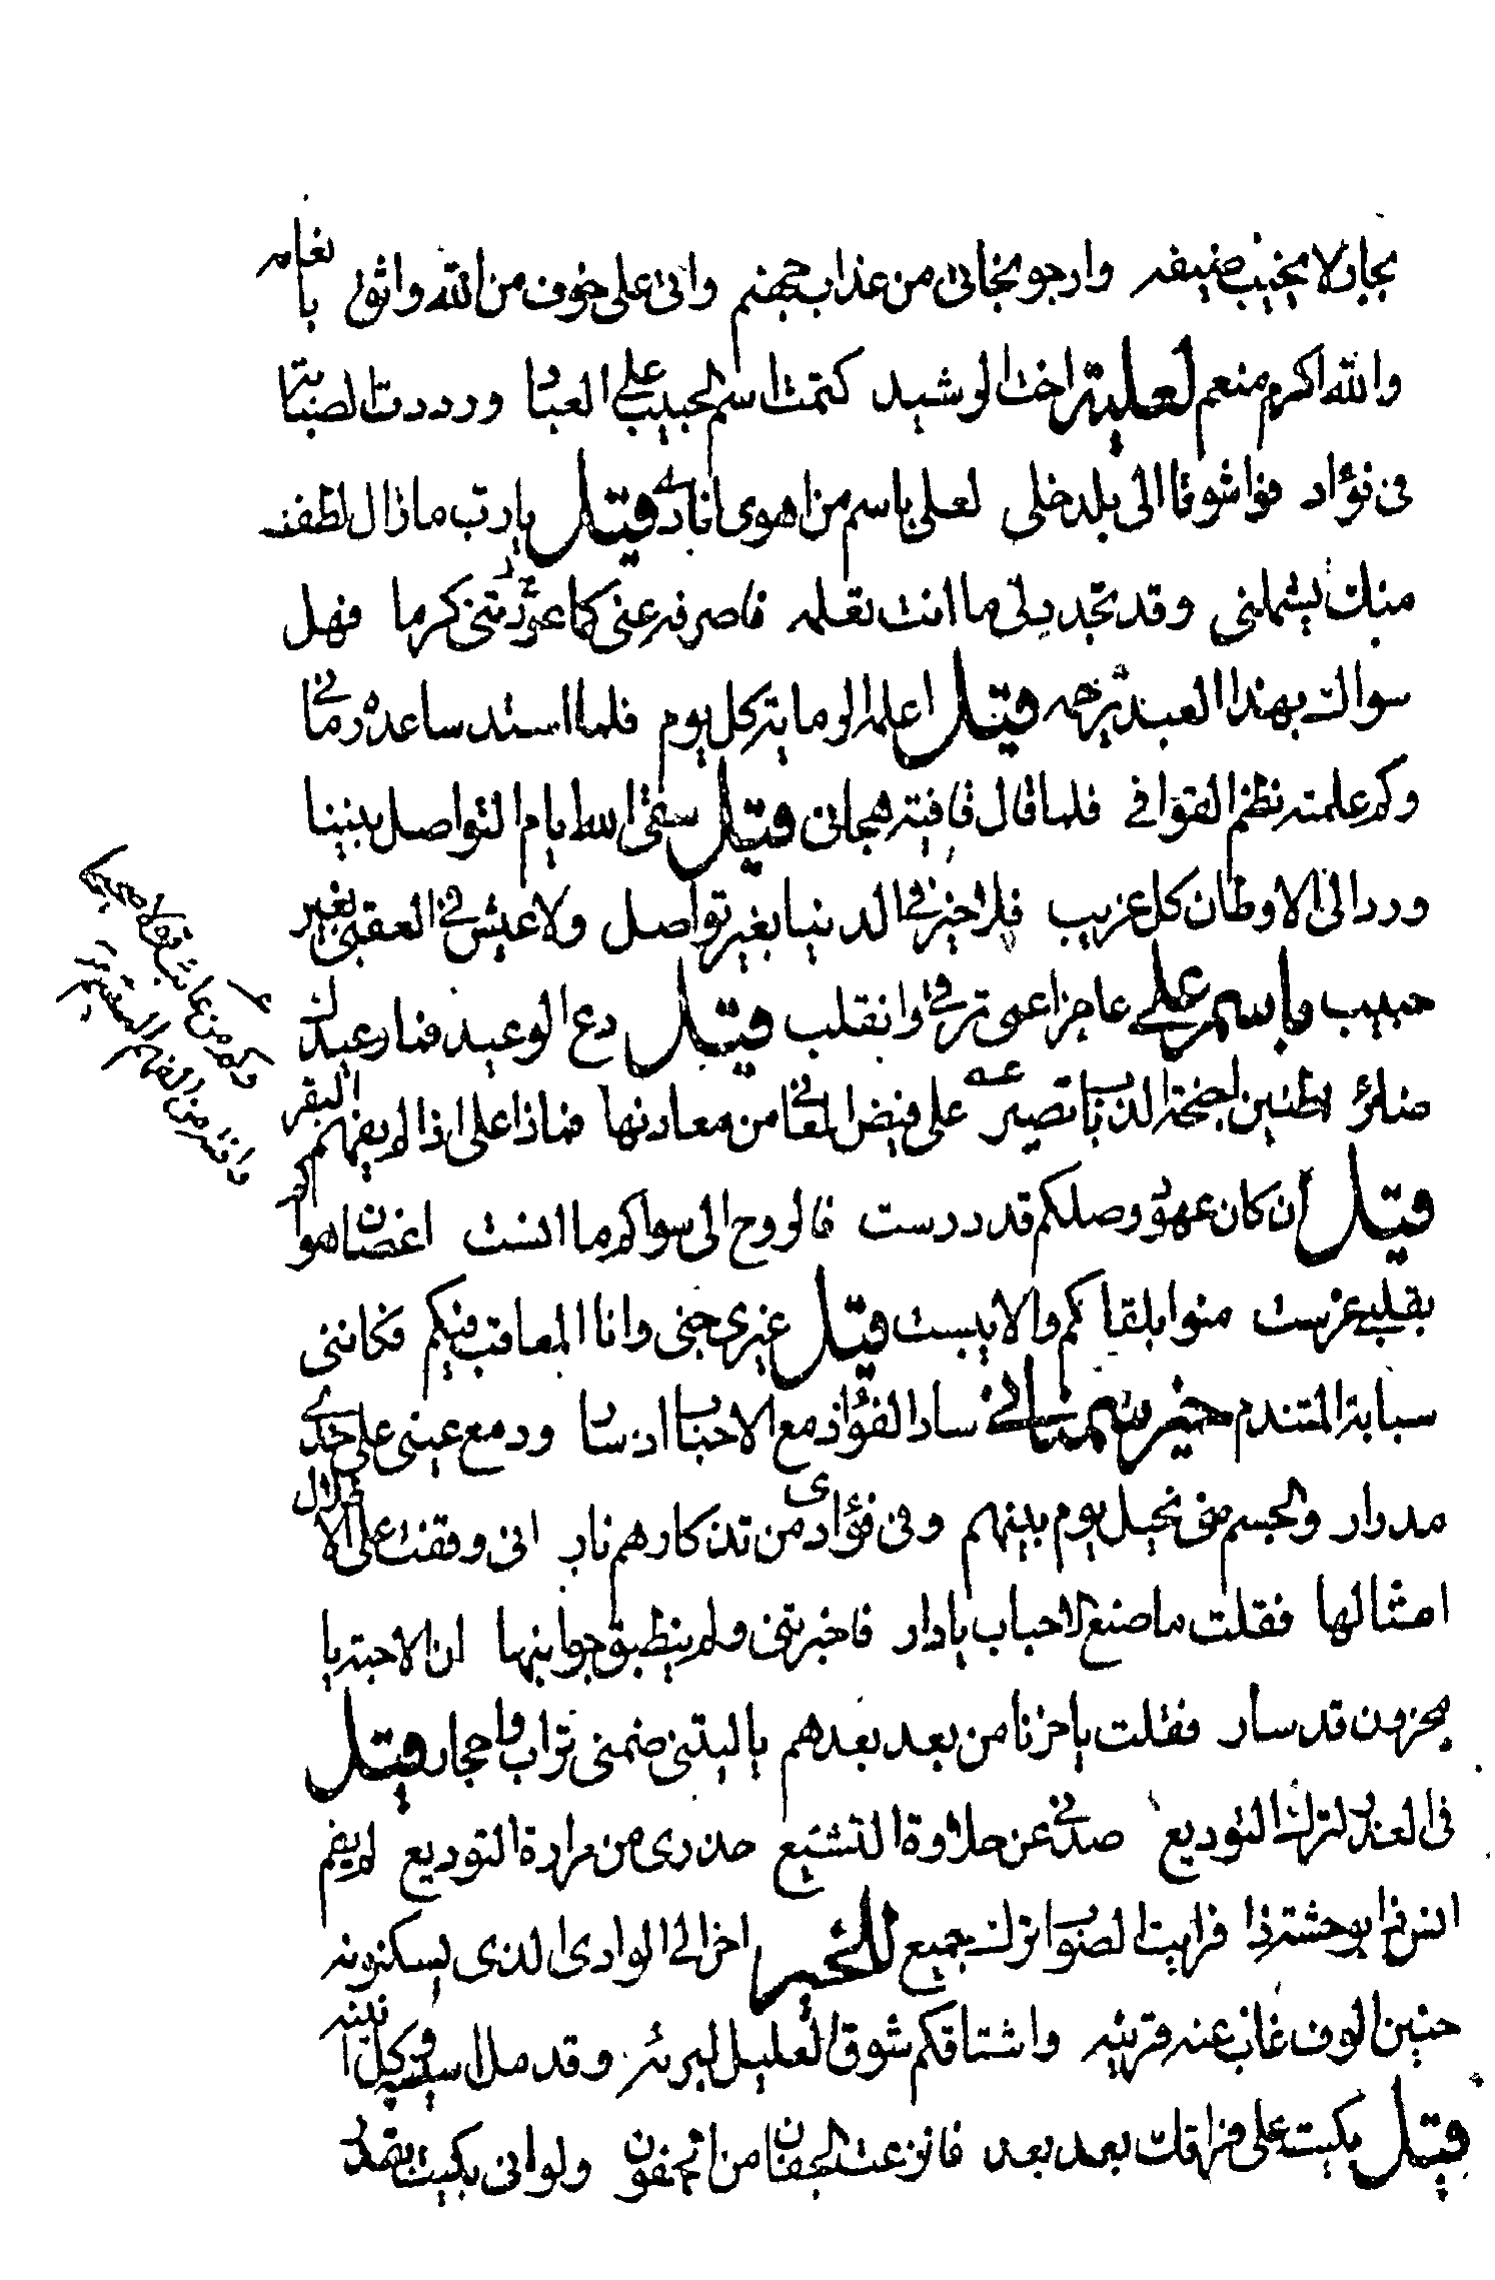 بجار لا يخيب ضيفه وارجو نجاتى من عذاب جهنم وانى على خوف من الله واثق بانعامه
والله اكرم منعم لعلية اخت الرشيد كتمت اسم الحبيب على العباد ورددت الصبابة
فى فؤاد فواشوقا الى بلد خلى لعلى باسم من اهوى انادى قيل يارب مازال لطف
منك يشملنى وقد تجدد لى ما انت تعلمه فاصرفه عنى كما عودتنى كرما فهل
سواك بهذا العبد يرحمه قيل اعلمه الرماية كل يوم فلما استد ساعده رمانى
وكم علمته نظم القوافى فلما قال قافية هجانى قيل سقى الله ايام التواصل بيننا
ورد الى الاوطان كل غريب فلا خير فى الدنيا بغير تواصل ولا عيش فى العقبى بغير
حبيب وباسم على عاجز اعمى ترقى وانقلب قيل دع الوعيد فما وعيدك
ضائر اطنين اجنحة الذباب تصير عه على فيض المعانى من معادنها فماذا على اذا لم يفهم البقر
قيل ان كان عهود وصلكم قد درست فالروح الى سواكم ما انست اغصان هواكم
بقلبى غرست منوا بلقاكم والا يبست قيل غيرى جنى وانا المعاقب فيكم فكاننى
سبابة المتندم سار الفؤاد مع الاحباب اذ ساروا ودمع عينى على خدى
مدرار والجسم منى نحيل يوم بينهم وفى فؤادى من تذكارهم نار انى وقفت على الاطلال
امثالها فقلت ما صنع الاحباب يا دار فاخبرتنى ولم ينطق جوابنها ان الاحبة يا
محزون قد ساروا فقلت يا حزنا من بعد بعدهم يا ليتنى ضمنى تراب واحجار قيل
فى العذر لترك التوديع صدنى عن حلاوة التشييع حذرى من مرارة التوديع لم يقم
انس ذا بوحشة ذا فرايت الصواب ترك جميع للخير احن الى الوادى الذى يسكنونه
حنين الوف غاب عنه قرينه واشتاقكم شوق العليل لبرئه وقد مل
قيل بكيت على فراقك بعد بعد فانزعت الجفان من الجفون ولو انى بكيت بقدر
وكم من عائب قولا صحيحا
وافته من الفهم السقيم